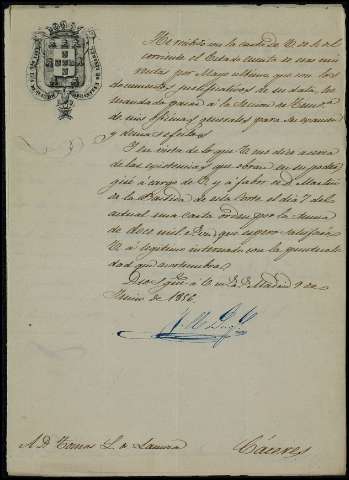 He recibido con la carta de V. de 4 del
corriente el Estado cuenta de sus mi
nutas por Mayo ultimo que con los
documentos justificativos de su data, he
mandado pasar á la Seccion de
de mis oficinas generales para su examen
y demas efectos.
En vista de lo que V. me dice acerca
de las existencias que obran en su poder,
giré á cargo de V. y á favor de D. Martin
de la de esta Corte, el dia 7 del
actual una carta orden por la suma
de doce mil que espero satisfará
V. á legitimo interesado con la puntuali
dad que acostumbra.
Dios gue. á V. m. a. Madrid 9 de
Junio de 1856.
A D. Tomas L. de
Cáceres